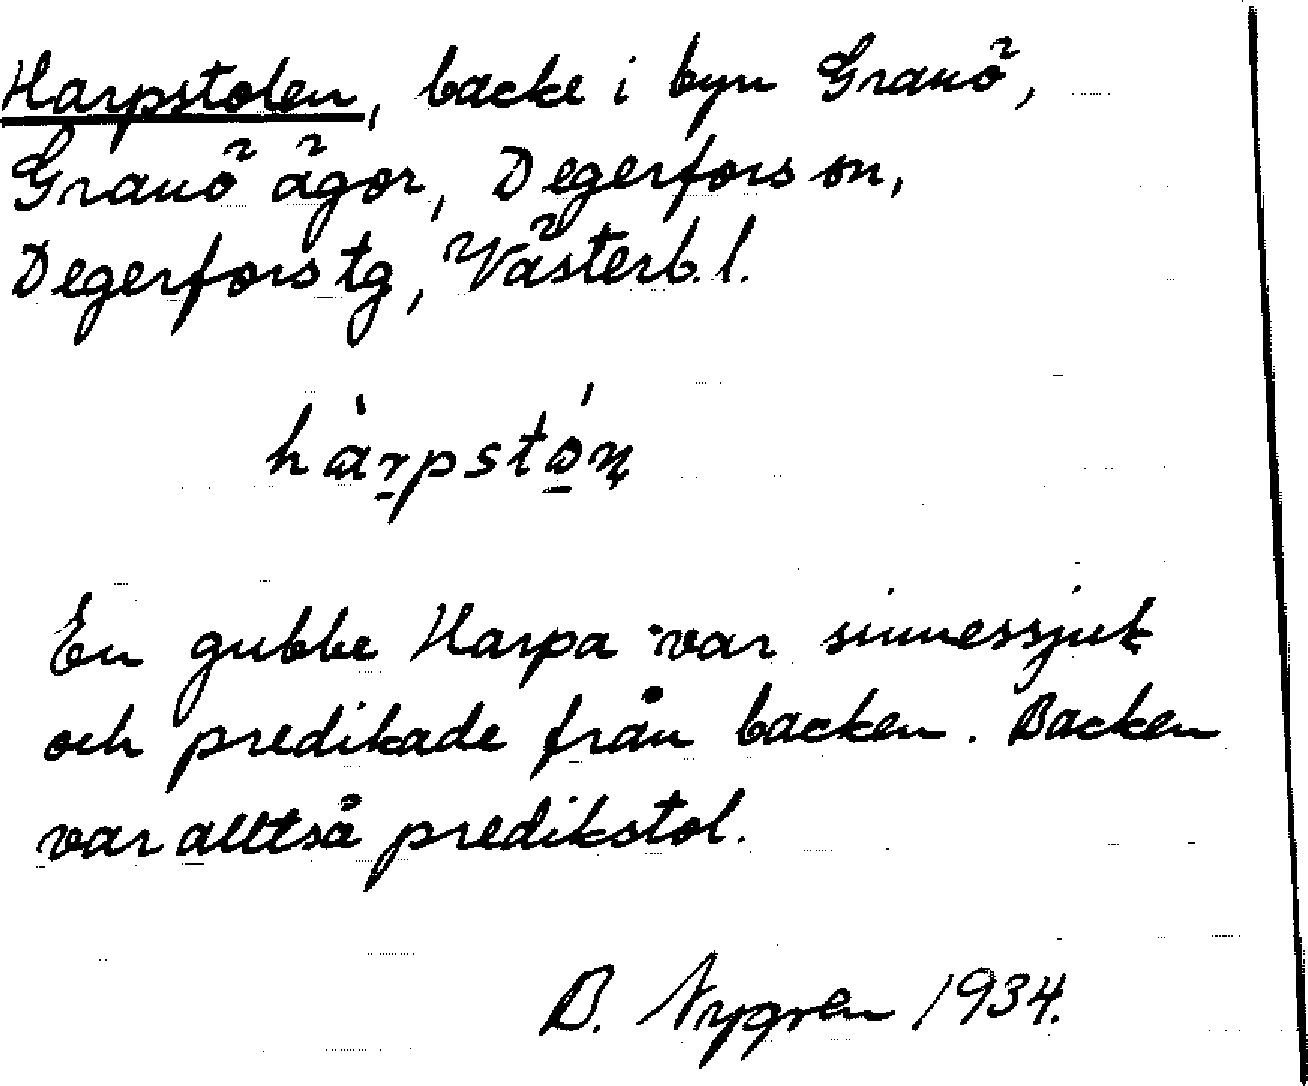 Harpstolen, backe i byn Granö,
Granö ägor, Degerfors sn,
Degerfors tg, Västerb. l.
hàr̲pstó̲n̥
En gubbe Harpa var sinnessjuk
och predikade från backen. Backen
var alltså predikstol.
B. Nygren 1934.